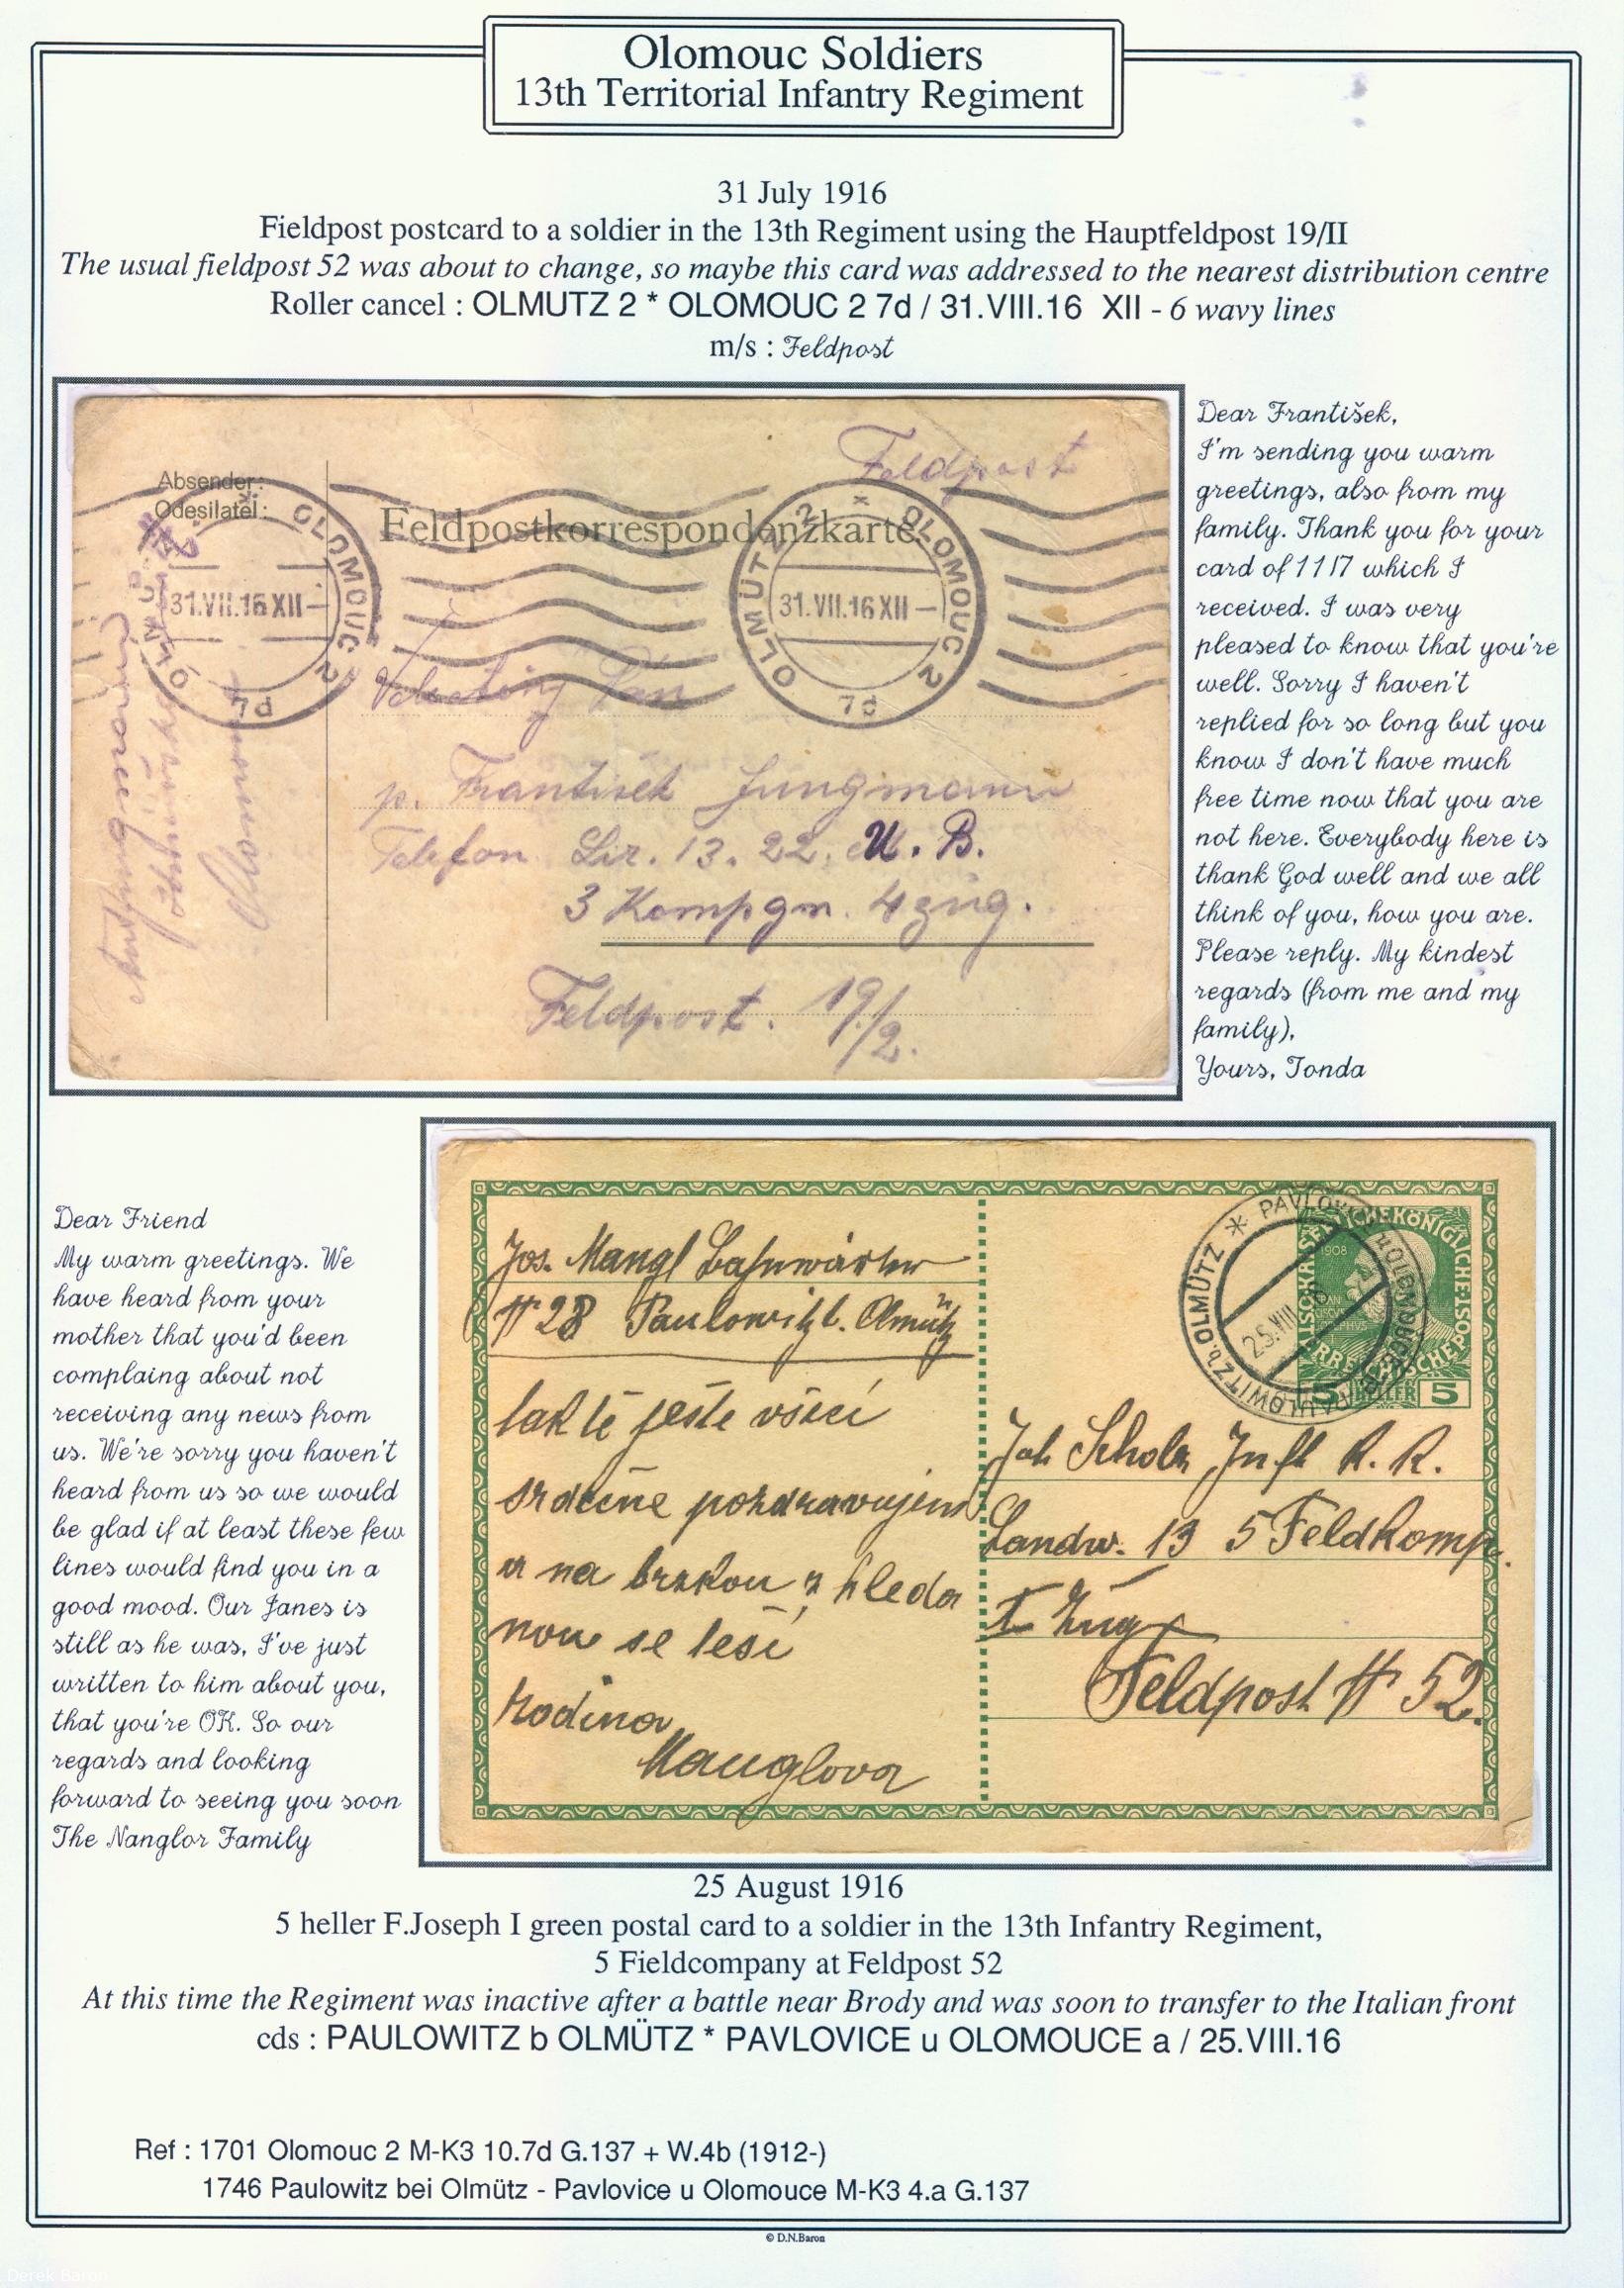 Olomouc Soldiers
13th Territorial Infantry Regiment
31 July 1916
Fieldpost postcard to a soldier in the 13th Regiment using the Hauptfeldpost 19/II
The usual fieldpost 52 was about to change, so maybe this card was addressed to the nearest distribution centre
Roller cancel : OLMUTZ 2 * OLOMOUC 2 7d / 31.VIII.16 XII - 6 wavy lines
m/s : Feldpost
Feldpost
Absender:
Odesilatel:
Feldpostkorrespondenzkarte.
OLOMOUC 2
31.VII.16 XII
7d
OLMÜTZ 2 * OLOMOUC 2
31.VII.16 XII
7d
Pan
p. František Jungmann
Telefon Lir. 13. 22. U. B.
3 Kompgn. 4 zug.
Feldpost. 19/2.
Dear František,
I'm sending you warm
greetings, also from my
family. Thank you for your
card of 11/7 which I
received. I was very
pleased to know that you're
well. Sorry I haven't
replied for so long but you
know I don't have much
free time now that you are
not here. Everybody here is
thank God well and we all
think of you, how you are.
Please reply. My kindest
regards (from me and my
family),
Yours, Tonda
Dear Friend
My warm greetings. We
have heard from your
mother that you'd been
complaing about not
receiving any news from
us. We're sorry you haven't
heard from us so we would
be glad if at least these few
lines would find you in a
good mood. Our Janes is
still as he was, I've just
written to him about you,
that you're OK. So our
regards and looking
forward to seeing you soon
The Nanglor Family
Jos. Mangl Bahnwärter
# 28 Paulowitz b. Olmütz
tak tě ještě všeci
srdečně pozdravujem
a na brzkou z hleda
nou se těší
Rodina
Manglova
PAULOWITZ b. OLMÜTZ * PAVLOVICE u OLOMOUCE
25.VIII
1908
KAISERLICHEKÖNIGLICHE
5 HELLER 5
Joh Scholz Inft R. R.
Landw. 13 5 Feldkomp.
I Zug
Feldpost # 52.
25 August 1916
5 heller F.Joseph I green postal card to a soldier in the 13th Infantry Regiment,
5 Fieldcompany at Feldpost 52
At this time the Regiment was inactive after a battle near Brody and was soon to transfer to the Italian front
cds : PAULOWITZ b OLMÜTZ * PAVLOVICE u OLOMOUCE a / 25.VIII.16
Ref : 1701 Olomouc 2 M-K3 10.7d G.137 + W.4b (1912-)
1746 Paulowitz bei Olmütz - Pavlovice u Olomouce M-K3 4.a G.137
© D.N.Baron
Derek Baron